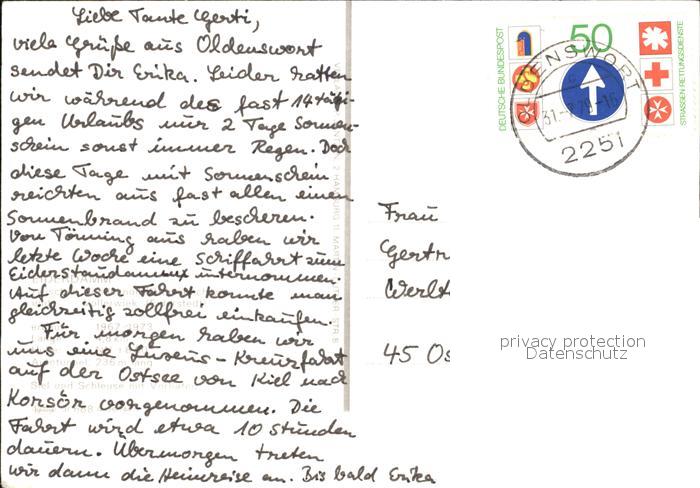 Liebe Tante Gerti,
viele Grüße aus Oldenswort
sendet Dir Erika. Leider hatten
wir während des fast 14täti-
gen Urlaubs nur 2 Tage Sonnen-
schein sonst immer Regen. Doch
diese Tage mit Sonnenschein
reichten aus fast allen einen
Sonnenbrand zu bescheren.
Von Tönning aus haben wir
letzte Woche eine Schiffahrt zum
Eiderstaudamm unternommen.
Auf dieser Fahrt konnte man
gleichzeitig zollfrei einkaufen.
Für morgen haben wir
uns eine Luxus-Kreuzfahrt
auf der Ostsee von Kiel nach
Korsör vorgenommen. Die
Fahrt wird etwa 10 Stunden
dauern. Übermorgen treten
wir dann die Heimreise an. Bis bald Erika
DEUTSCHE BUNDESPOST
50
STRASSEN-RETTUNGSDIENSTE
OLDENSWORT
2251
Frau
Gertr
Werth
45 Os
privacy protection
Datenschutz
1967-1973
Siel und Schleuse mit